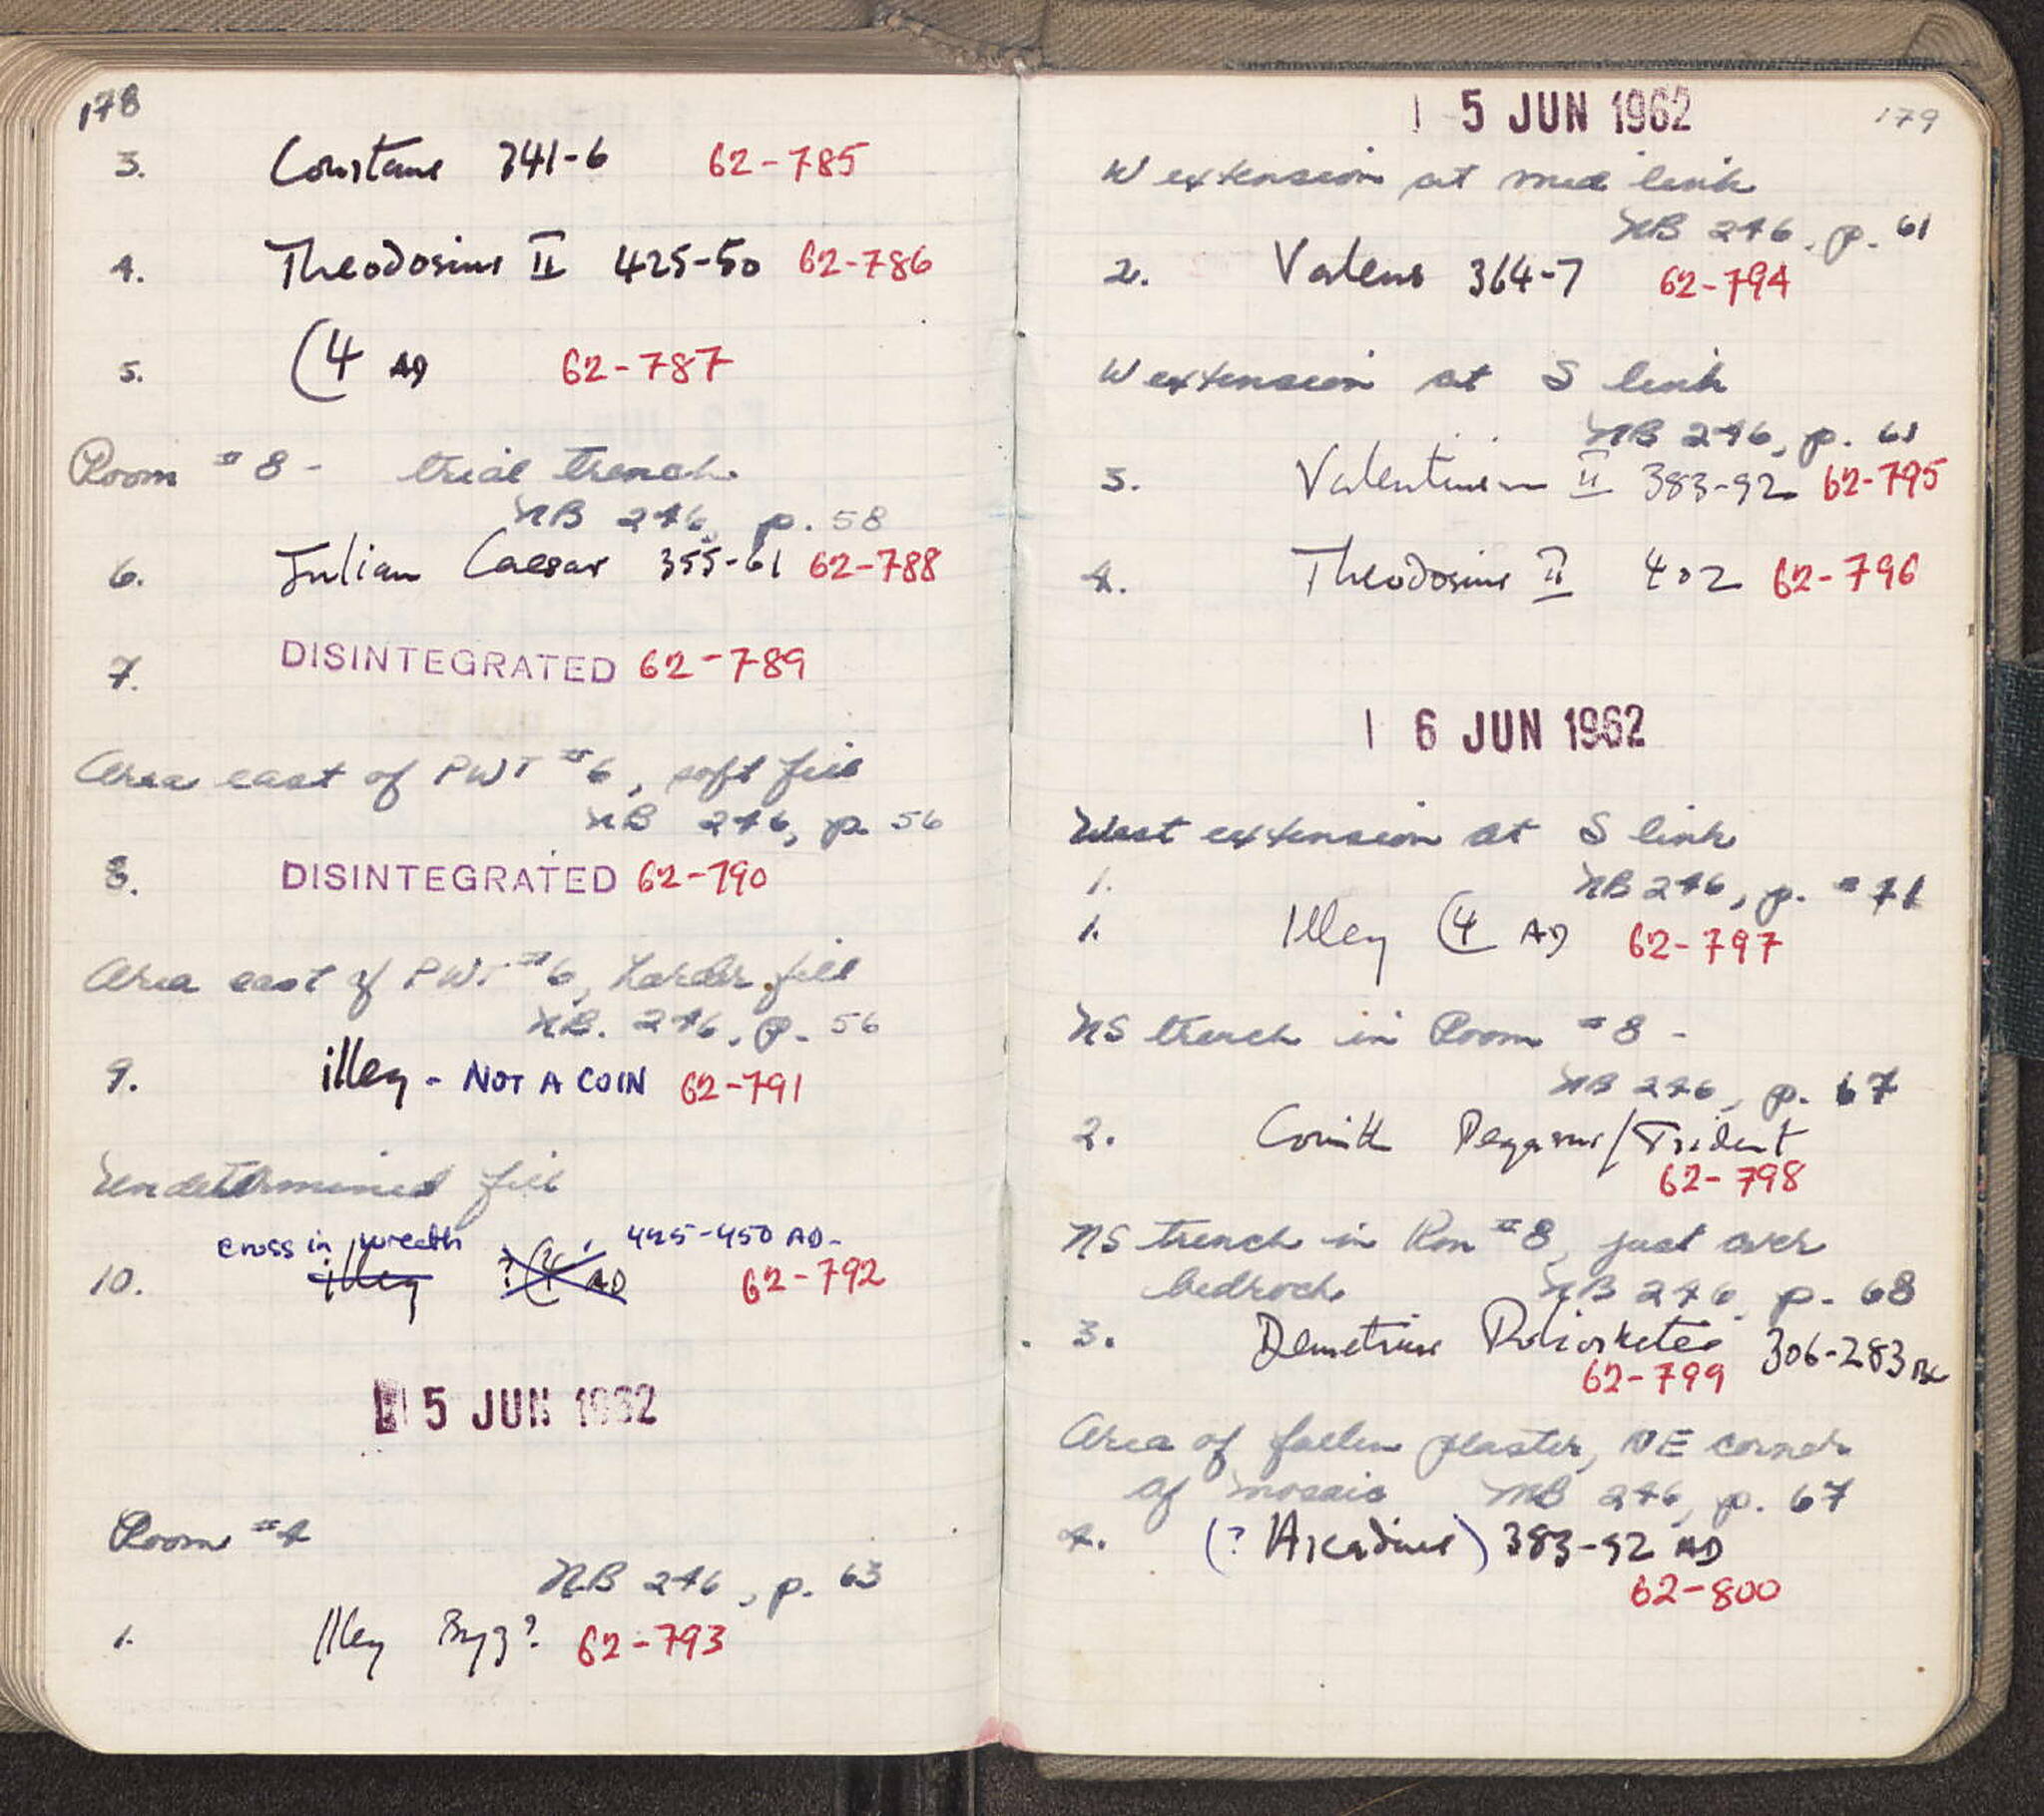 178
3. Constans 341-6 62-785
4. Theodosius II 425-50 62-786
5. C4 AD 62-787
Room #8 - trial trench
NB 246, p. 58
6. Julian Caesar 355-61 62-788
7. DISINTEGRATED 62-789
Area east of PWT #6, soft fill
NB 246, p. 56
8. DISINTEGRATED 62-790
Area east of PWT #6, harder fill
NB. 246, p. 56
9. illeg - NOT A COIN 62-791
Undetermined fill
cross in wreath 425-450 AD-
10. illeg ? C4 AD 62-792
15 JUN 1962
Room #4
NB 246, p. 63
1. Illeg Byz? 62-793
179
15 JUN 1962
W extension at mid link
NB 246, p. 61
2. Valens 364-7 62-794
W extension at S link
NB 246, p. 61
3. Valentinian II 383-92 62-795
4. Theodosius II 402 62-796
16 JUN 1962
West extension at S link
1. NB 246, p. #71
1. Illeg C4 AD 62-797
NS trench in Room #8 -
NB 246, p. 67
2. Corinth Pegasus/Trident
62-798
NS trench in Rm #8, just over
bedrock NB 246, p. 68
3. Demetrius Poliorketes 306-283 BC
62-799
Area of fallen plaster, NE corner
of mosaic NB 246, p. 67
4. (? Arcadius) 383-92 AD
62-800